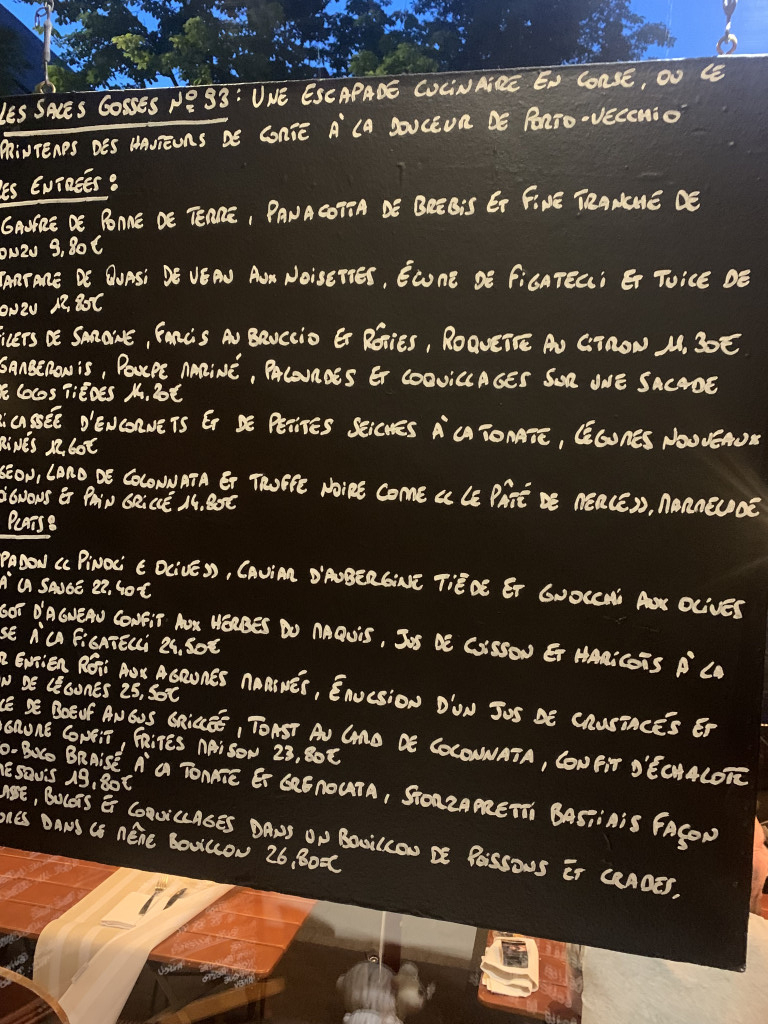 LES SALES GOSSES Nº 93 : UNE ESCAPADE CULINAIRE EN CORSE, OU LE
PRINTEMPS DES HAUTEURS DE CORTE À LA DOUCEUR DE PORTO-VECCHIO
LES ENTRÉES :
GAUFRE DE POMME DE TERRE, PANACOTTA DE BREBIS ET FINE TRANCHE DE
ONZU 9,80€
TARTARE DE QUASI DE VEAU AUX NOISETTES, ÉCUME DE FIGATELLI ET TUILE DE
ONZU 12,80€
FILETS DE SARDINE, FARCIS AU BRUCCIO ET RÔTIES, ROQUETTE AU CITRON 11,30€
GAMBERONIS, POULPE MARINÉ, PALOURDES ET COQUILLAGES SUR UNE SALADE
DE COCOS TIÈDES 14,20€
RICASSÉE D'ENCORNETS ET DE PETITES SEICHES À LA TOMATE, LÉGUMES NOUVEAUX
RINÉS 12,60€
GEON, LARD DE COLONNATA ET TRUFFE NOIRE COMME « LE PÂTÉ DE MERLE », MARMELADE
OIGNONS ET PAIN GRILLÉ 14,80€
PLATS :
PADON « PINOLI E OLIVE », CAVIAR D'AUBERGINE TIÈDE ET GNOCCHI AUX OLIVES
À LA SAUGE 22,40€
GOT D'AGNEAU CONFIT AUX HERBES DU MAQUIS, JUS DE CUISSON ET HARICOTS À LA
SE À LA FIGATELLI 24,50€
R ENTIER RÔTI AUX AGRUMES MARINÉS, ÉMULSION D'UN JUS DE CRUSTACÉS ET
N DE LÉGUMES 25,50€
CE DE BOEUF ANGUS GRILLÉE, TOAST AU LARD DE COLONNATA, CONFIT D'ÉCHALOTE
GRUME CONFIT, FRITES MAISON 23,80€
O-BUCO BRAISÉ À LA TOMATE ET GREMOLATA, STORZAPRETTI BASTIAIS FAÇON
ESQUIS 19,80€
ASSE, BULOTS ET COQUILLAGES DANS UN BOUILLON DE POISSONS ET CRABES,
ORES DANS LE MÊME BOUILLON 26,80€